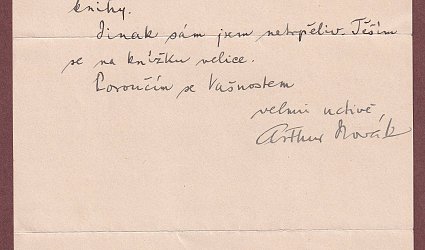 knihy.
Jinak sám jsem netrpěliv. Těším
se na knížku velice.
Poroučím se Vašnostem
velmi uctivě,
Arthur Novák